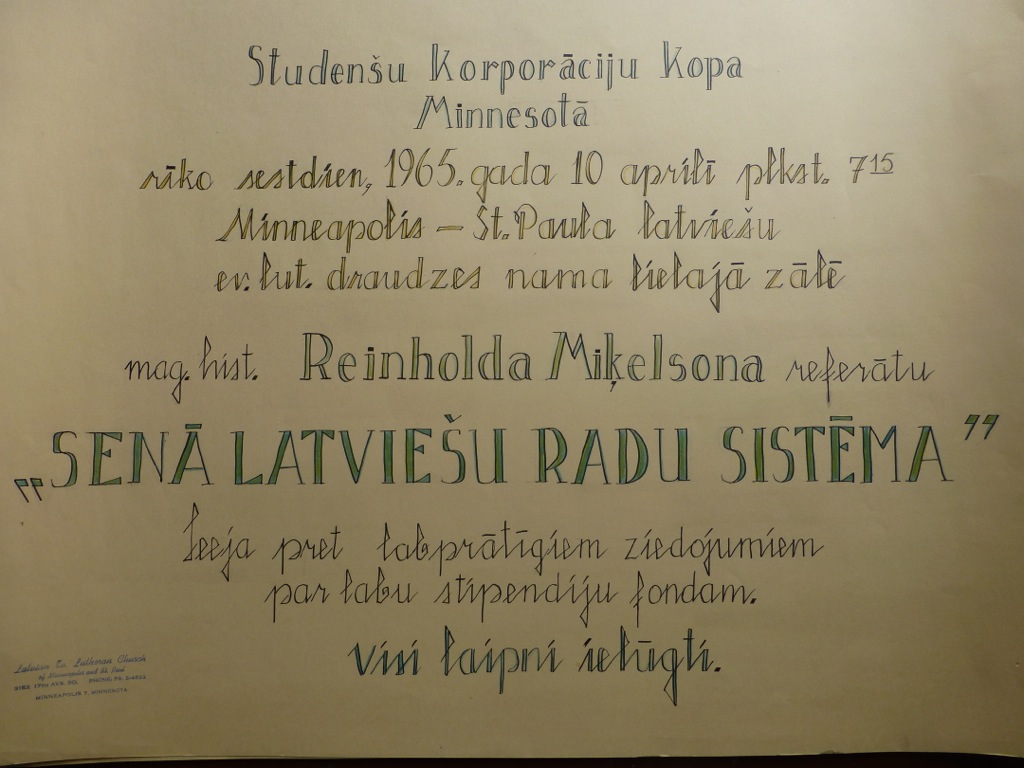 Studenšu Korporāciju Kopa
Minnesotā
rīko sestdien, 1965. gada 10 aprīlī plkst. 7 15
Minneapolis – St. Paula latviešu
ev. lut. draudzes nama lielajā zālē
mag. hist. Reinholda Miķelsona referātu
„SENĀ LATVIEŠU RADU SISTĒMA”
Ieeja pret labprātīgiem ziedojumiem
par labu stipendiju fondam.
Visi laipni ielūgti.
Latvian Ev. Lutheran Church
of Minneapolis and St. Paul
AVE. SO. PHONE:
MINNEAPOLIS 7, MINNESOTA